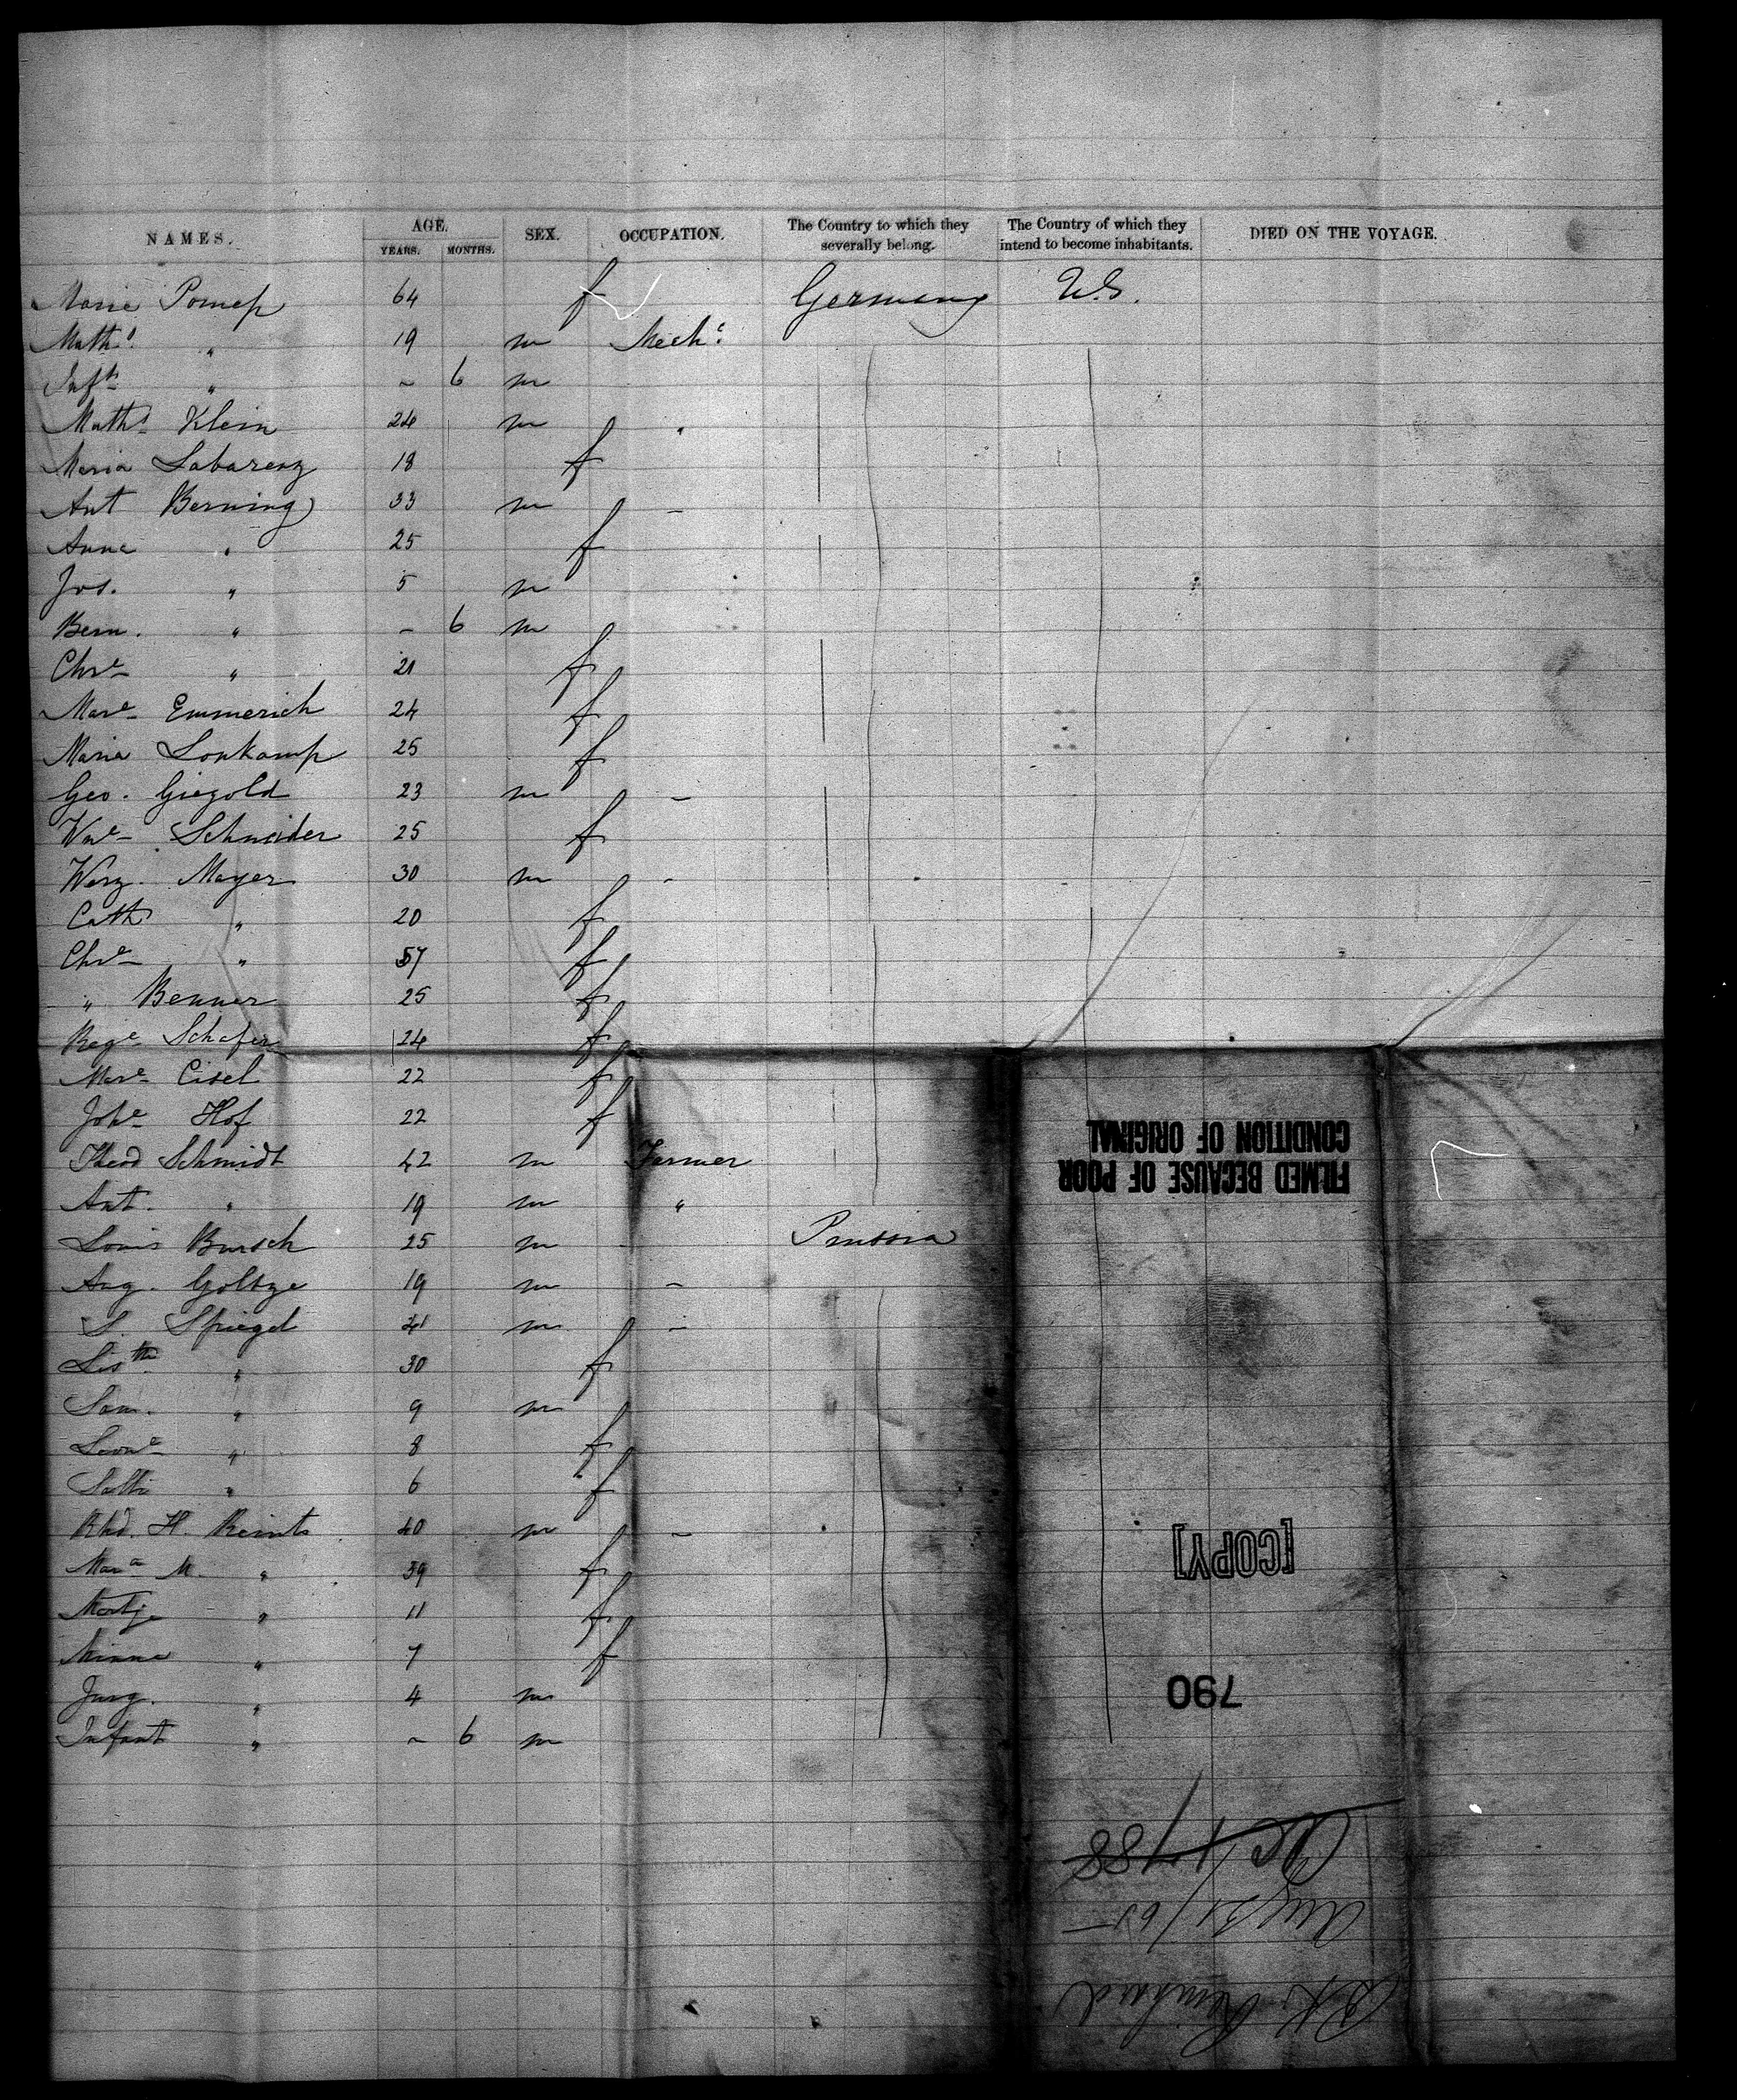 NAMES. AGE. YEARS. MONTHS. SEX. OCCUPATION. The Country to which they severally belong. The Country of which they intend to become inhabitants. DIED ON THE VOYAGE.
Maria 64 f Germany U.S.
Maths " 19 m Mechc
Inft " ~ 6 m
Maths Klein 24 m "
Maria Labarenz 18 f
Ant Berning 33 m –
Anna " 25 f
Jos. " 5 m
Bern. " – 6 m
Chre " 21 f
Mare Emmerich 24 f
Maria Lonkamp 25 f
Geo. Giegold 23 m –
Schneider 25 f
Mayer 30 m –
Cath " 20 f
Chre " 57 f
" Benner 25 f
Rege Schafer 24 f
Mare Eisel 22 f
Johe Hof 22 f
Theod Schmidt 42 m Farmer
Ant. " 19 m "
Louis Bursch 25 m – Prussia
Aug. Goltze 19 m –
S. Spiegel 41 m –
" 30 f
Sam. " 9 m
Leone " 8 f
" 6 f
Rhd. H. Reints 40 m –
Mara M. " 39 f
" 11 f
Minna " 7 f
Jurg. " 4 m
Infant " ~ 6 m
FILMED BECAUSE OF POOR
CONDITION OF ORIGINAL
[COPY]
790
BK Reinhard
Aug 21/65